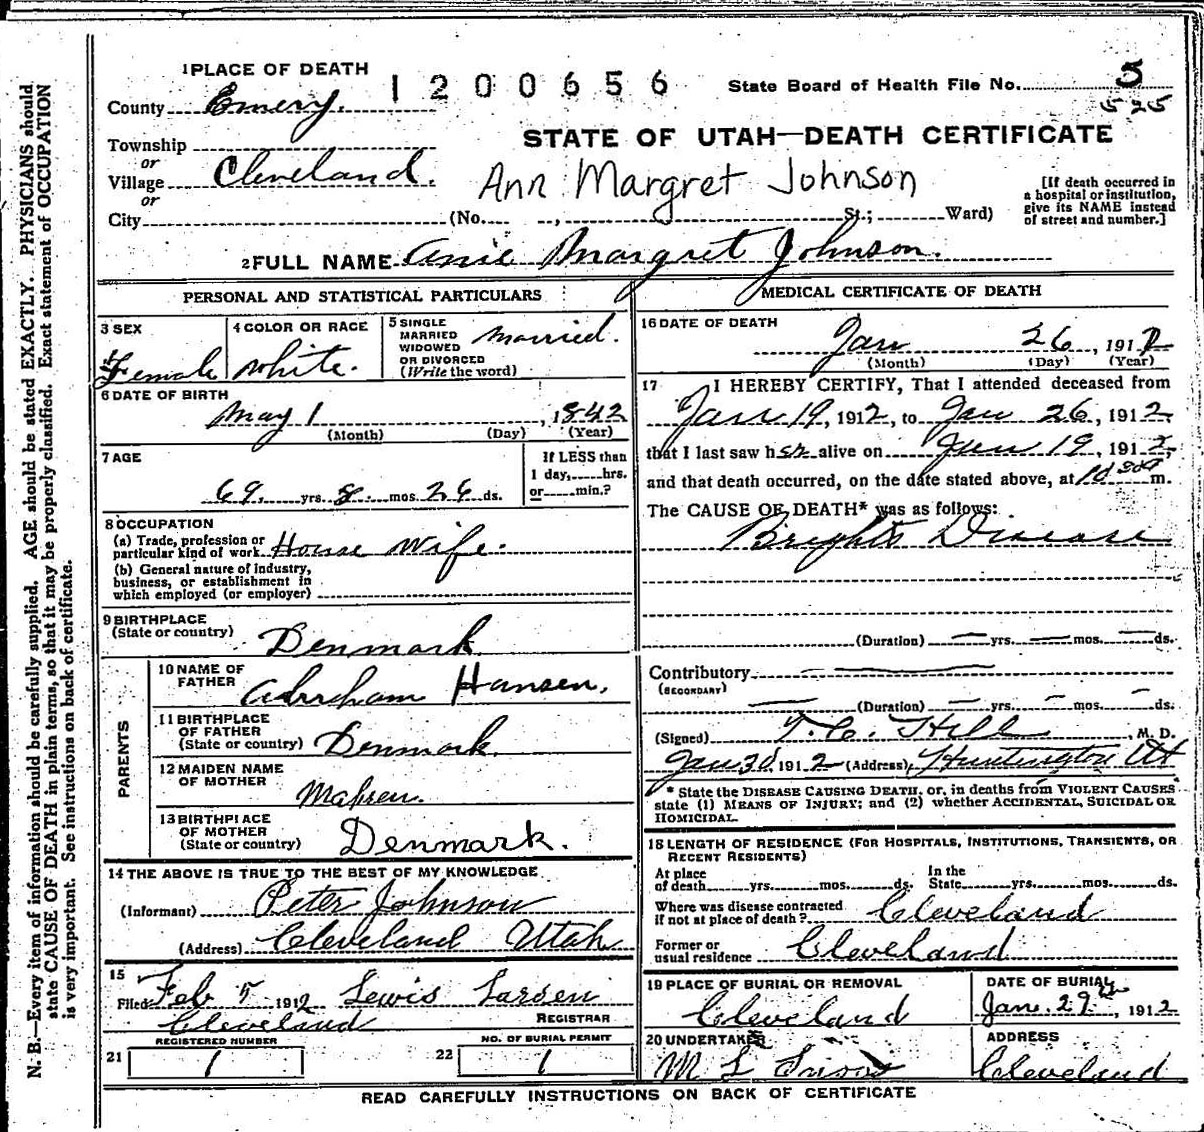 1 PLACE OF DEATH
1200656
State Board of Health File No. 5
525
County Emery.
STATE OF UTAH—DEATH CERTIFICATE
Township
or
Village Cleveland.
Ann Margret Johnson
or
City (No. , St.; Ward)
[If death occurred in
a hospital or institution,
give its NAME instead
of street and number.]
2 FULL NAME Anie Margret Johnson.
PERSONAL AND STATISTICAL PARTICULARS
3 SEX
Female
4 COLOR OR RACE
White.
5 SINGLE
MARRIED
WIDOWED
OR DIVORCED
(Write the word)
Married.
6 DATE OF BIRTH
May 1, 1842
(Month) (Day) (Year)
7 AGE
69 yrs. 8 mos. 26 ds.
If LESS than
1 day, hrs.
or min.?
8 OCCUPATION
(a) Trade, profession or
particular kind of work House Wife.
(b) General nature of industry,
business, or establishment in
which employed (or employer)
9 BIRTHPLACE
(State or country) Denmark
PARENTS
10 NAME OF
FATHER Abraham Hansen.
11 BIRTHPLACE
OF FATHER
(State or country) Denmark
12 MAIDEN NAME
OF MOTHER
13 BIRTHPLACE
OF MOTHER
(State or country) Denmark.
14 THE ABOVE IS TRUE TO THE BEST OF MY KNOWLEDGE
(Informant) Peter Johnson
(Address) Cleveland Utah
15
Filed Feb 5 1912 Lewis Larsen
Cleveland REGISTRAR
REGISTERED NUMBER
21 1
NO. OF BURIAL PERMIT
22 1
MEDICAL CERTIFICATE OF DEATH
16 DATE OF DEATH
Jan 26, 1912
(Month) (Day) (Year)
17 I HEREBY CERTIFY, That I attended deceased from
Jan 19, 1912, to Jan 26, 1912,
that I last saw her alive on Jan 19, 1912,
and that death occurred, on the date stated above, at m.
The CAUSE OF DEATH* was as follows:
Brights Disease
(Duration) — yrs. — mos. — ds.
Contributory
(SECONDARY)
— (Duration) — yrs. — mos. — ds.
(Signed) T. C. Hill, M. D.
Jan 30, 1912 (Address) Huntington Ut
* State the DISEASE CAUSING DEATH, or, in deaths from VIOLENT CAUSES
state (1) MEANS OF INJURY; and (2) whether ACCIDENTAL, SUICIDAL OR
HOMICIDAL.
18 LENGTH OF RESIDENCE (FOR HOSPITALS, INSTITUTIONS, TRANSIENTS, OR
RECENT RESIDENTS)
At place
of death yrs. mos. ds.
In the
State yrs. mos. ds.
Where was disease contracted
if not at place of death? Cleveland
Former or
usual residence Cleveland
19 PLACE OF BURIAL OR REMOVAL
Cleveland
DATE OF BURIAL
Jan. 29th, 1912
20 UNDERTAKER
M L
ADDRESS
Cleveland
READ CAREFULLY INSTRUCTIONS ON BACK OF CERTIFICATE
N. B.—Every item of information should be carefully supplied. AGE should be stated EXACTLY. PHYSICIANS should
state CAUSE OF DEATH in plain terms, so that it may be properly classified. Exact statement of OCCUPATION
is very important. See instructions on back of certificate.